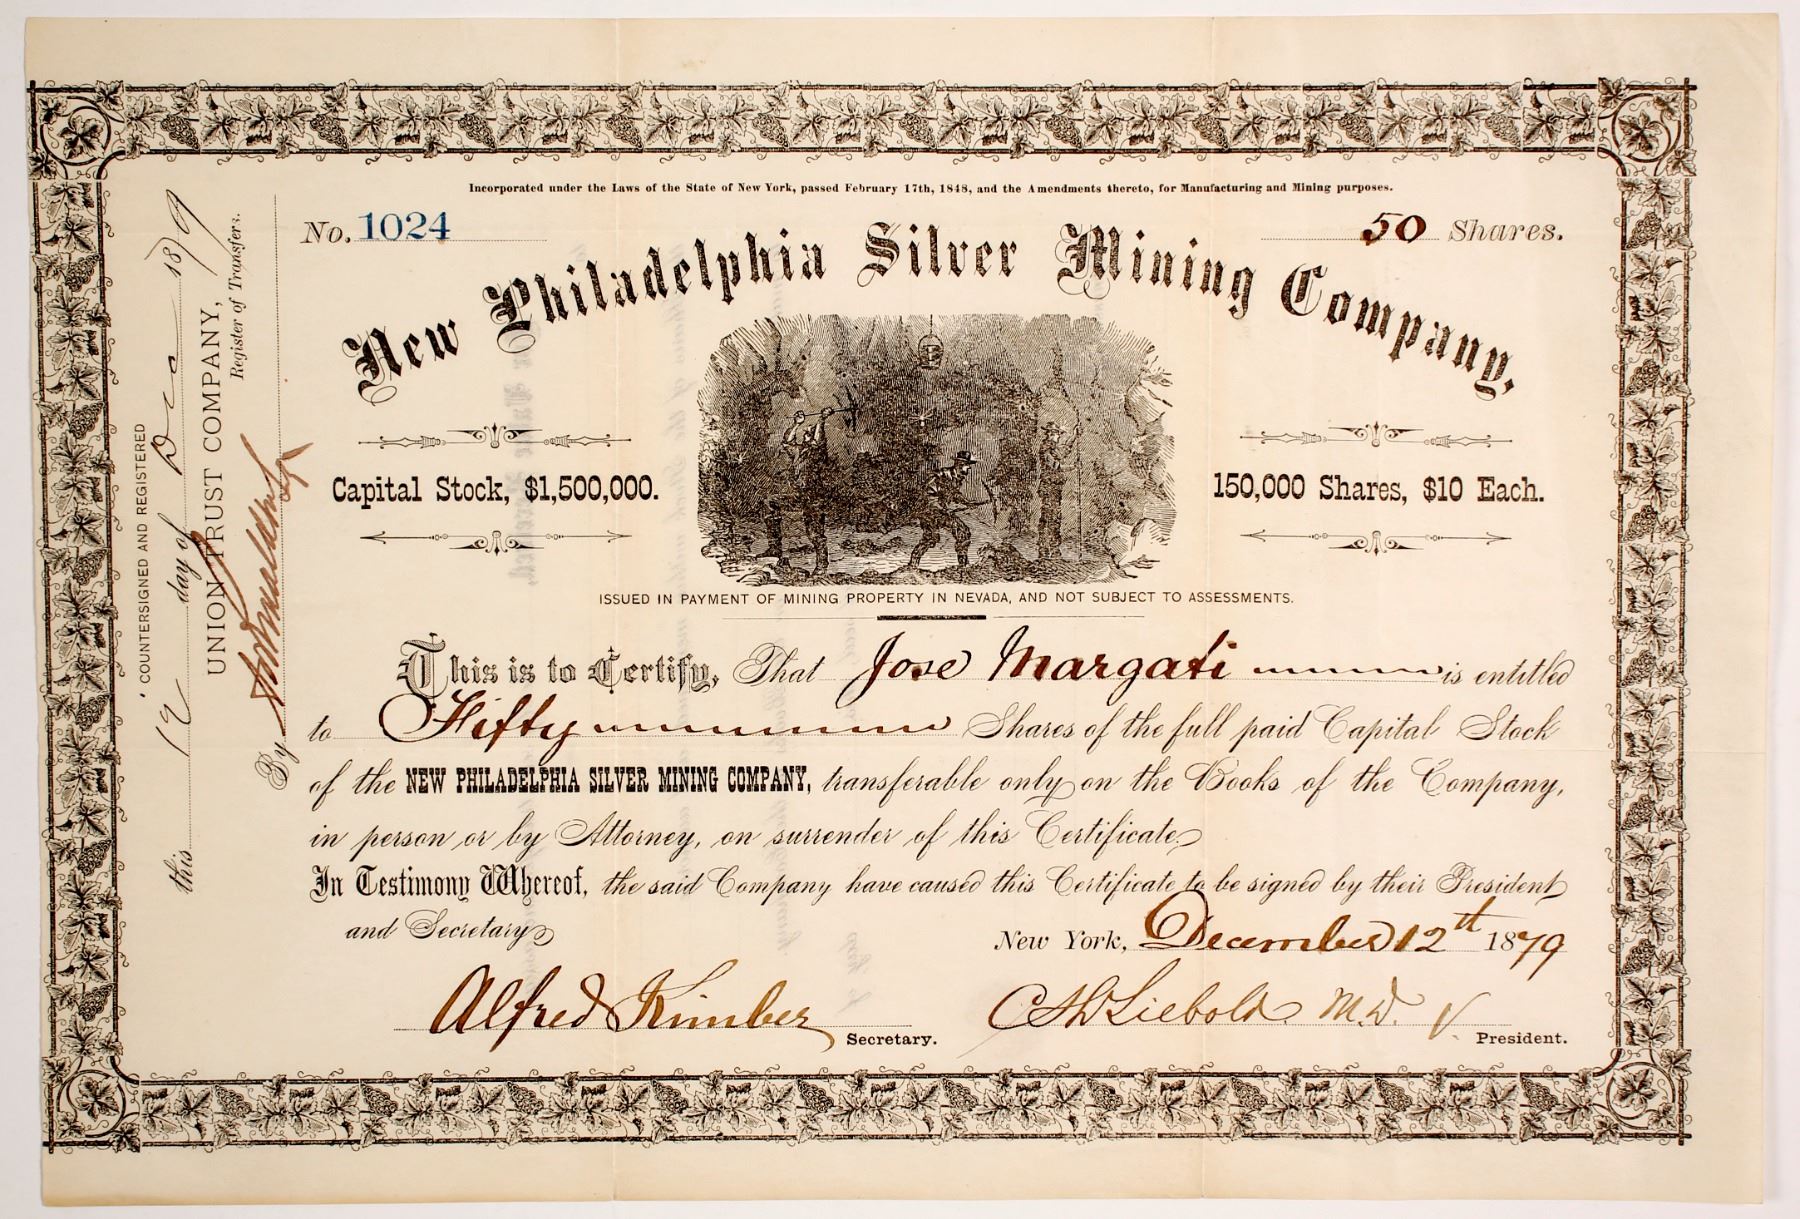 Incorporated under the Laws of the State of New York, passed February 17th, 1848, and the Amendments thereto, for Manufacturing and Mining purposes.
No. 1024
50 Shares.
New Philadelphia Silver Mining Company.
Capital Stock, $1,500,000.
150,000 Shares, $10 Each.
ISSUED IN PAYMENT OF MINING PROPERTY IN NEVADA, AND NOT SUBJECT TO ASSESSMENTS.
This is to Certify, That Jose Margati is entitled
to Fifty Shares of the full paid Capital Stock
of the NEW PHILADELPHIA SILVER MINING COMPANY, transferable only on the Books of the Company,
in person or by Attorney, on surrender of this Certificate.
In Testimony Whereof, the said Company have caused this Certificate to be signed by their President
and Secretary
New York, December 12th 1879
Alfred Kimber Secretary.
Liebold M.D. V. President.
COUNTERSIGNED AND REGISTERED
this 12 day of Dec 1879
UNION TRUST COMPANY,
Register of Transfers.
By